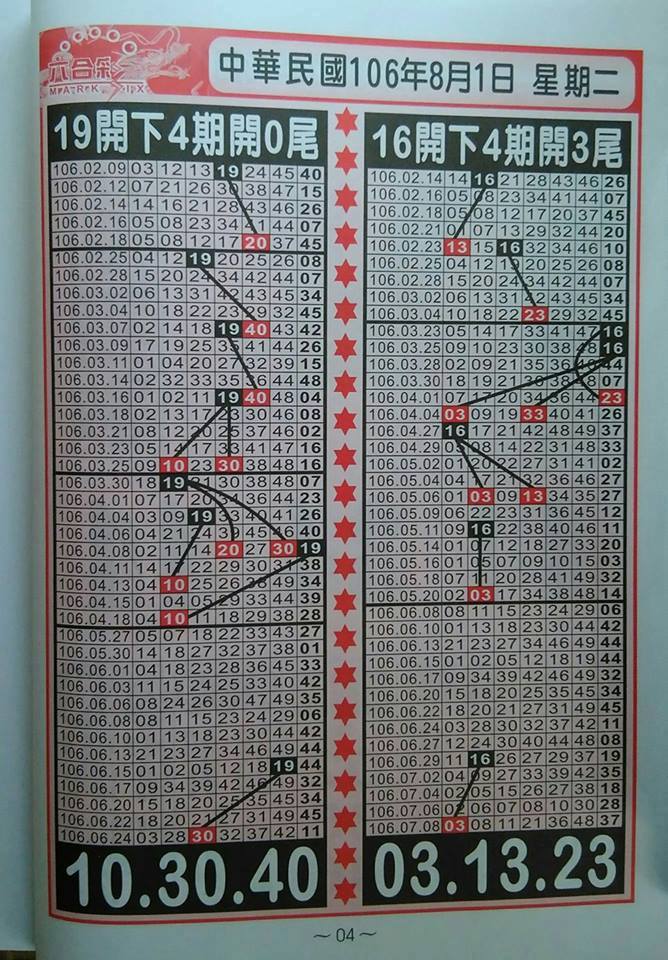 六合采
MARK SIX
中華民國106年8月1日 星期二
19開下4期開0尾
106.02.09 03 12 13 19 24 45 40
106.02.12 07 21 26 38 47 15
106.02.14 14 16 21 28 43 46 26
106.02.16 05 08 23 34 44 07
106.02.18 05 08 12 17 20 37 45
106.02.25 04 12 19 20 25 26 08
106.02.28 15 20 34 42 44 07
106.03.02 06 13 31 43 45 34
106.03.04 10 18 22 23 32 45
106.03.07 02 14 18 19 40 43 42
106.03.09 17 19 25 41 44 26
106.03.11 01 04 20 27 32 39 15
106.03.14 02 32 33 35 44 48
106.03.16 01 02 11 19 40 48 04
106.03.18 02 13 17 30 46 08
106.03.21 08 12 37 46 02
106.03.23 05 14 41 47 16
106.03.25 09 10 23 30 38 48 16
106.03.30 18 19 30 38 48 07
106.04.01 07 17 20 36 44 23
106.04.04 03 09 19 41 26
106.04.06 04 21 46 40
106.04.08 02 11 14 20 27 30 19
106.04.11 14 22 29 30 38
106.04.13 04 10 25 26 49 34
106.04.15 01 04 29 33 44 39
106.04.18 04 10 11 18 29 38 28
106.05.27 05 07 18 22 33 43 27
106.05.30 14 18 27 32 37 38 01
106.06.01 03 04 23 36 45 33
106.06.03 11 15 24 25 33 40 42
106.06.06 08 24 26 30 47 49 35
106.06.08 08 11 15 23 24 29 06
106.06.10 01 13 18 23 30 44 42
106.06.13 21 23 27 34 46 49 44
106.06.15 01 02 05 12 18 19 44
106.06.17 09 34 39 42 49 32
106.06.20 15 18 20 35 45 34
106.06.22 18 20 27 31 49 45
106.06.24 03 28 30 32 37 42 11
10.30.40
16開下4期開3尾
106.02.14 14 16 21 28 43 46 26
106.02.16 05 08 23 34 41 44 07
106.02.18 05 08 12 17 20 37 45
106.02.21 07 13 29 32 44 20
106.02.23 13 15 16 32 34 46 10
106.02.25 04 12 20 25 26 08
106.02.28 15 20 24 34 42 44 07
106.03.02 06 13 31 43 45 34
106.03.04 10 18 22 23 29 32 45
106.03.23 05 14 17 33 41 47 16
106.03.25 09 10 23 30 38 16
106.03.28 02 09 21 35 44
106.03.30 18 19 07
106.04.01 07 17 20 34 36 44 23
106.04.04 03 09 19 33 40 41 26
106.04.27 16 17 21 42 48 49 37
106.04.29 08 14 22 31 48 33
106.05.02 01 20 22 27 31 41 02
106.05.04 07 27 49 50
106.05.06 01 03 09 13 34 35 27
106.05.09 06 22 23 31 34 01
106.05.11 09 16 22 38 40 46 11
106.05.13 01 07 12 18 27 33 20
106.05.16 01 05 07 09 10 15 03
106.05.18 07 11 28 41 49 32
106.05.20 02 03 17 34 38 48 14
106.06.08 08 11 15 23 24 29 06
106.06.10 01 13 18 23 30 44 42
106.06.13 21 23 27 34 46 49 44
106.06.15 01 02 05 12 18 19 44
106.06.17 09 34 39 42 46 49 32
106.06.20 15 18 20 25 35 45 34
106.06.22 18 20 21 27 31 49 45
106.06.24 03 28 30 32 37 42 11
106.06.27 12 24 30 40 44 48 08
106.06.29 11 16 26 27 29 37 19
106.07.02 04 09 27 33 39 42 35
106.07.04 17 26 28 37 38 18
106.07.06 06 07 08 10 30 28
106.07.08 03 08 11 21 36 48 37
03.13.23
～04～